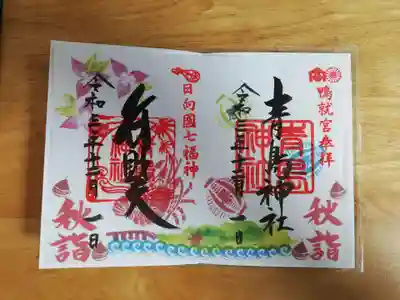 鴨就宮奉拝
青島神社
令和三年十一月一日
秋詣
日向國七福神
弁財天
令和三年十一月一日
秋詣